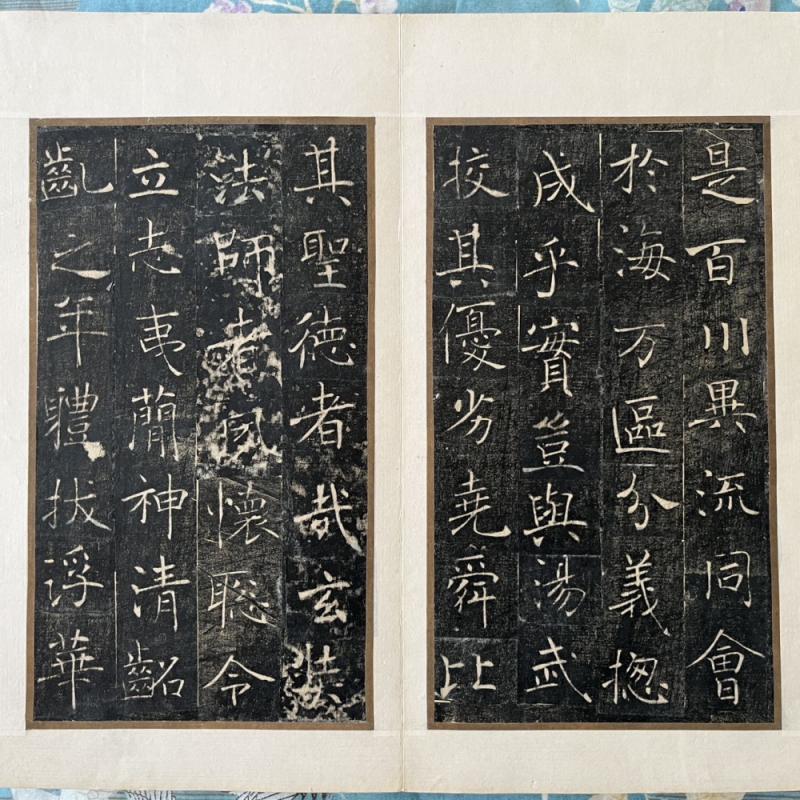 是百川異流同會
於海万區分義揔
成乎實豈與湯武
挍其優劣堯舜比
其聖德者哉玄奘
法師者夙懷聡令
立志夷蕳神清齠
齓之年體拔浮華